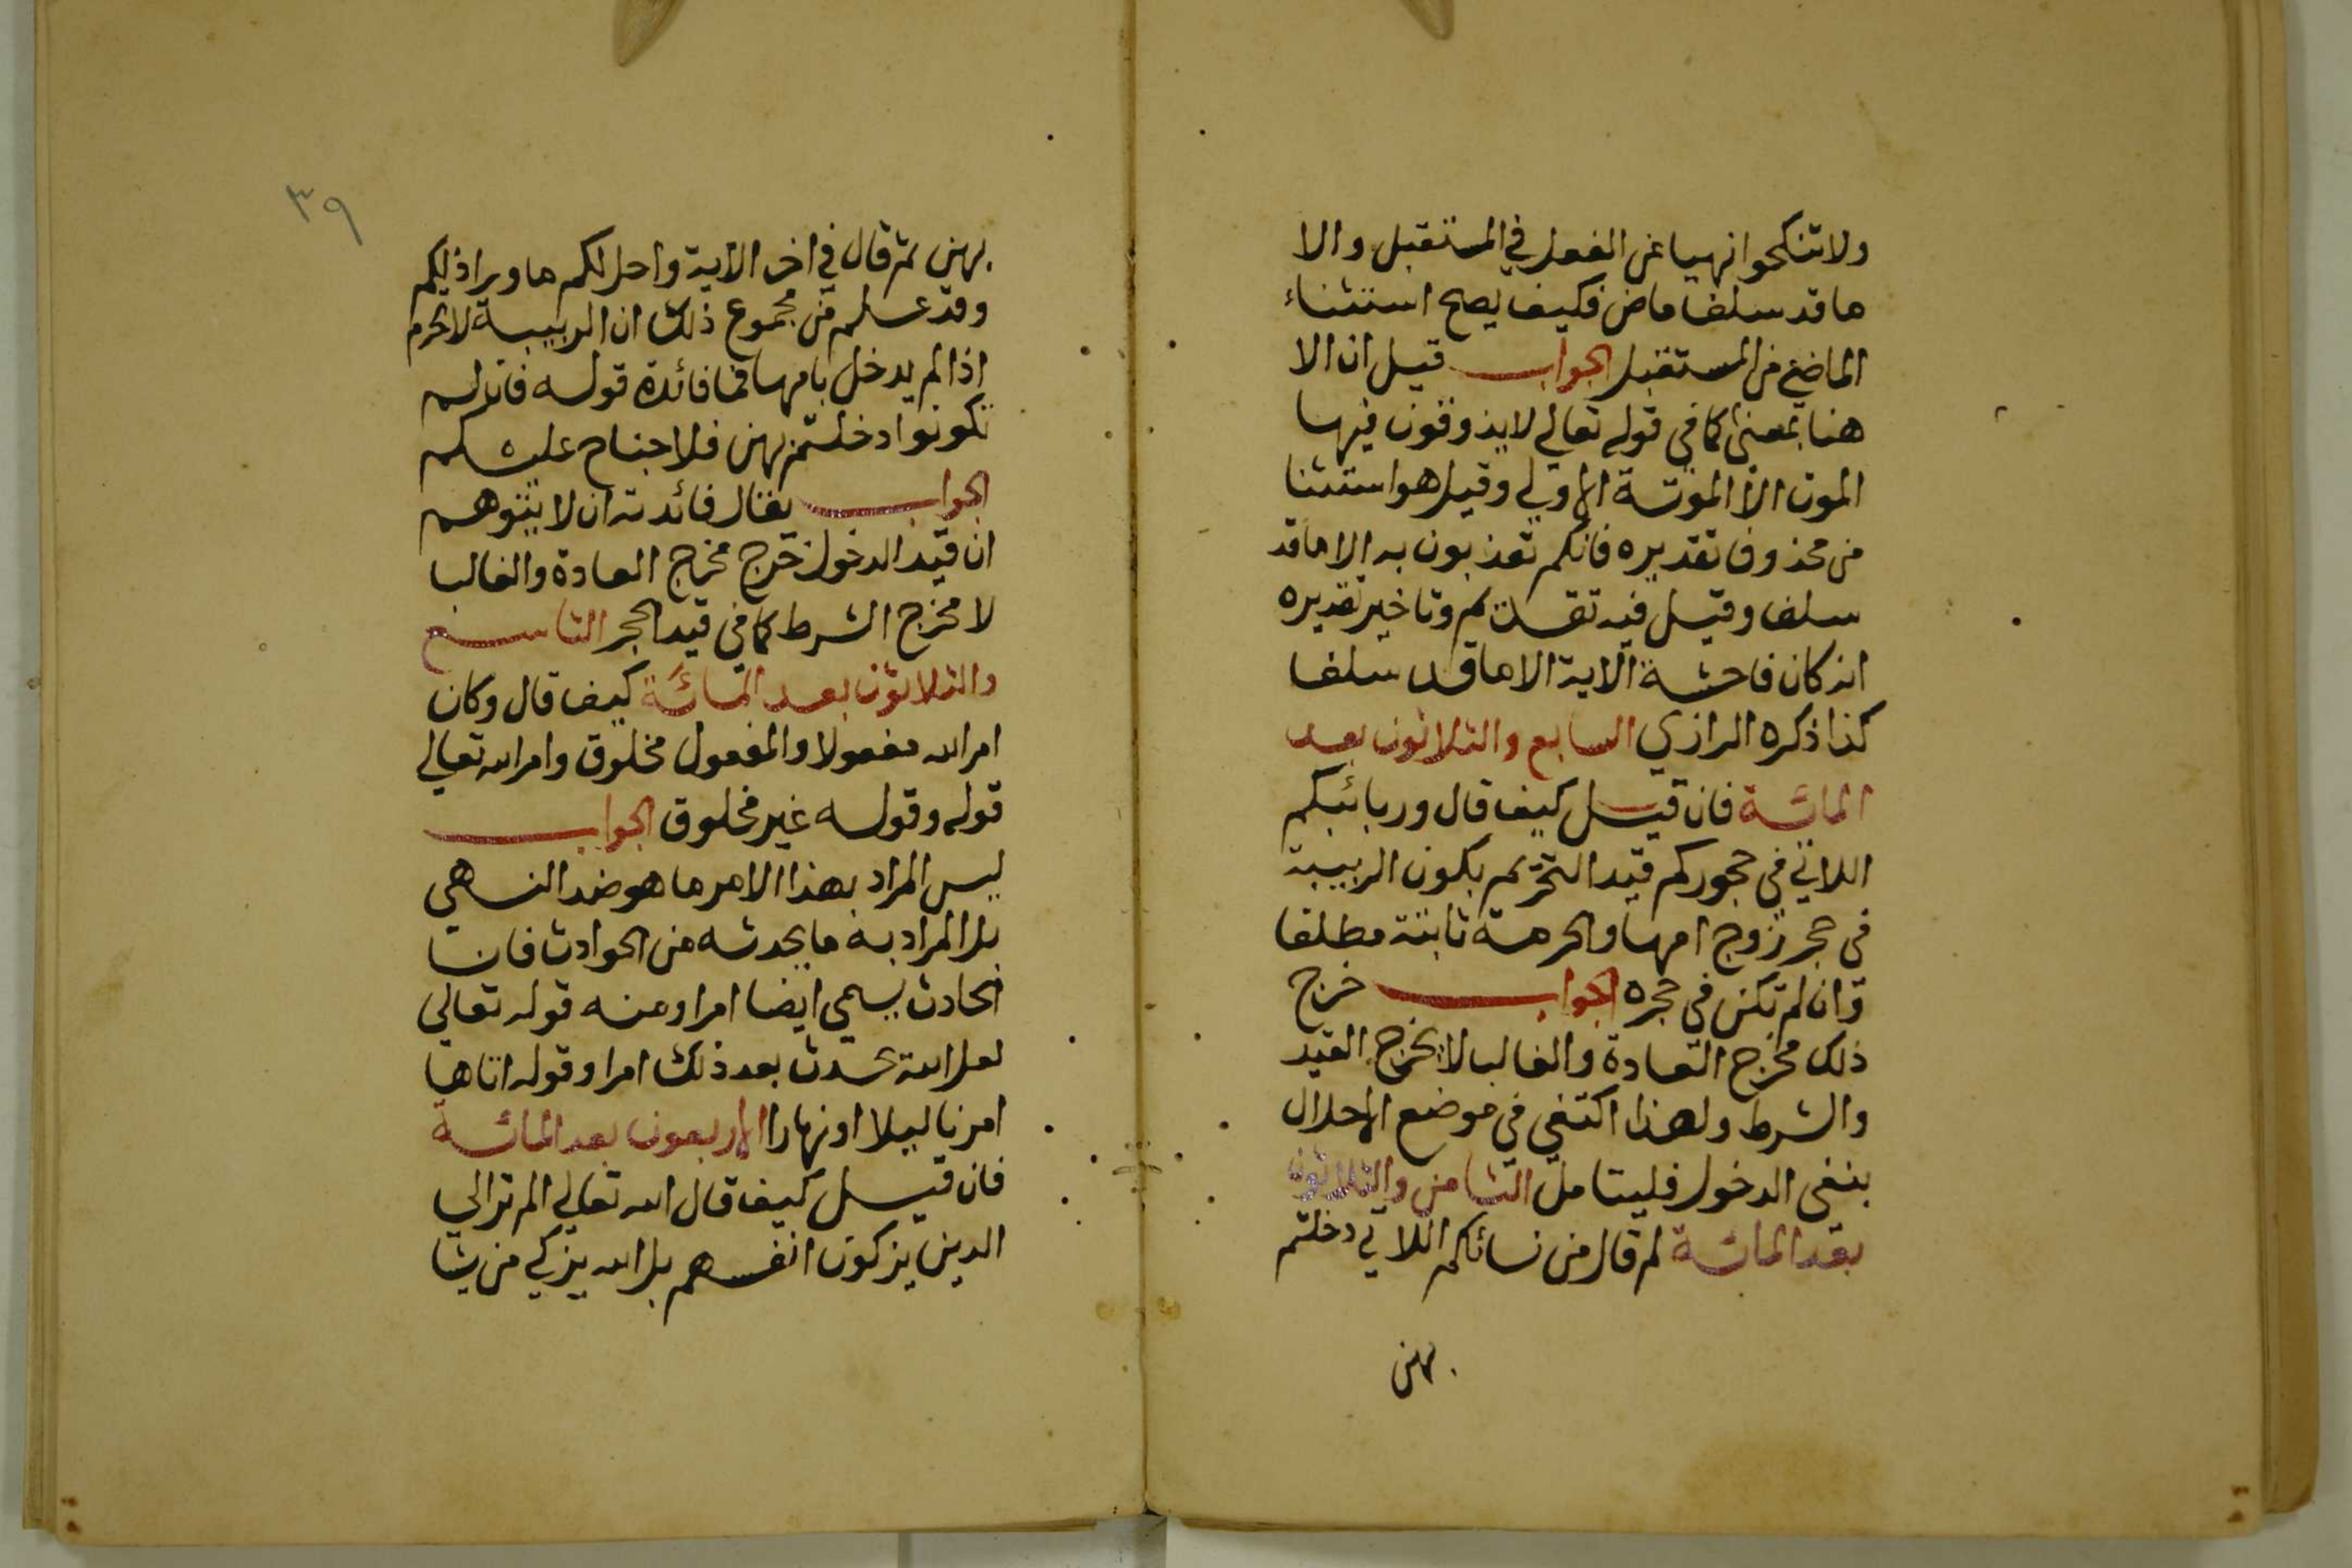 ولا تنكحوا نهيا عن الفعل في المستقبل والا
ما قد سلف ماض فكيف يصح استثناء
الماضي من المستقبل الجواب قيل ان الا
هنا بمعنى كما في قوله تعالي لا يذوقون فيها
الموت الا الموتة الاولي وقيل هو استثنا
من محذوف تقديره فانكم تعذبون به الا ما قد
سلف وقيل فيه تقديم وتاخير تقديره
انه كان فاحشة الاية الا ما قد سلف
كذا ذكره الرازي السابع والثلاثون بعد
المائة فان قيل كيف قال وربائبكم
اللاتي في حجوركم قيد التحريم بكون الربيبة
في حجر زوج امها والحرمة ثابتة مطلقا
وان لم تكن في حجره الجواب خرج
ذلك مخرج العادة والغالب لا مخرج القيد
والشرط ولهذا اكتفي في موضع الاحلال
بنفي الدخول فليتامل الثامن والثلاثون
بعد المائة لم قال من نسائكم اللاتي دخلتم
بهن
٣٩
بهن ثم قال في اخر الاية واحل لكم ما وراذلكم
وقد علم من مجموع ذلك ان الربيبة لا تحرم
اذا لم يدخل بامها فما فائدة قوله فان لم
تكونوا دخلتم بهن فلا جناح عليكم
الجواب يقال فائدته ان لا يتوهم
ان قيد الدخول خرج مخرج العادة والغالب
لا مخرج الشرط كما في قيد الحجر التاسع
والثلاثون بعد المائة كيف قال وكان
امر الله مفعولا والمفعول مخلوق وامر الله تعالي
قوله وقوله غير مخلوق الجواب
ليس المراد بهذا الامر ما هو ضد النهي
بل المراد به ما يحدثه من الحوادث فان
الحادث يسمي ايضا امرا ومنه قوله تعالي
لعل الله يحدث بعد ذلك امرا وقوله اتاها
امرنا ليلا او نهارا الاربعون بعد المائة
فان قيل كيف قال الله تعالي الم تر الي
الذين يزكون انفسهم بل الله يزكي من يشا